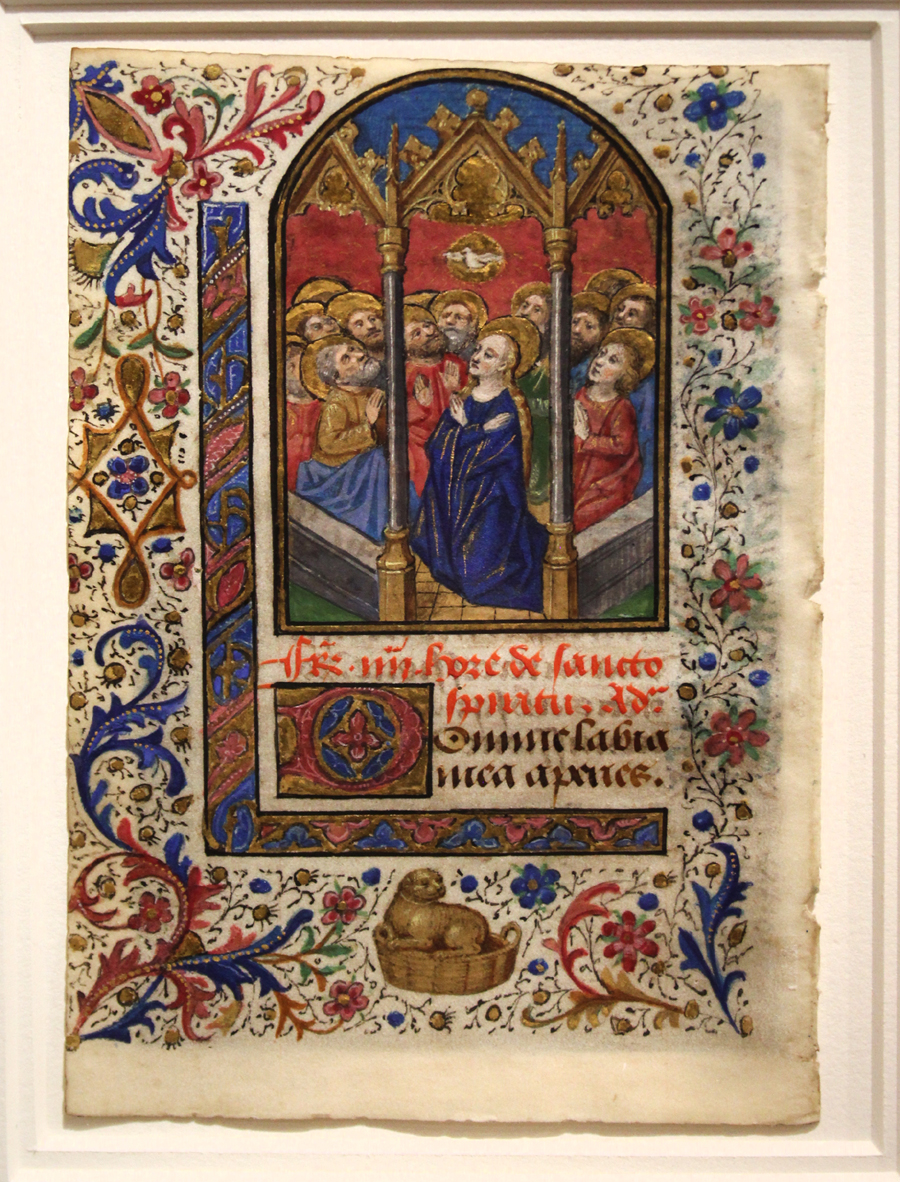 iiij. hore de sancto
spiritu. Ad
Domine labia
mea aperies.